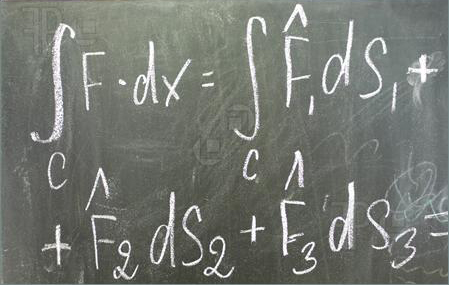 ∫_C F · dx = ∫_C F̂₁ dS₁ +
+ F̂₂ dS₂ + F̂₃ dS₃ =